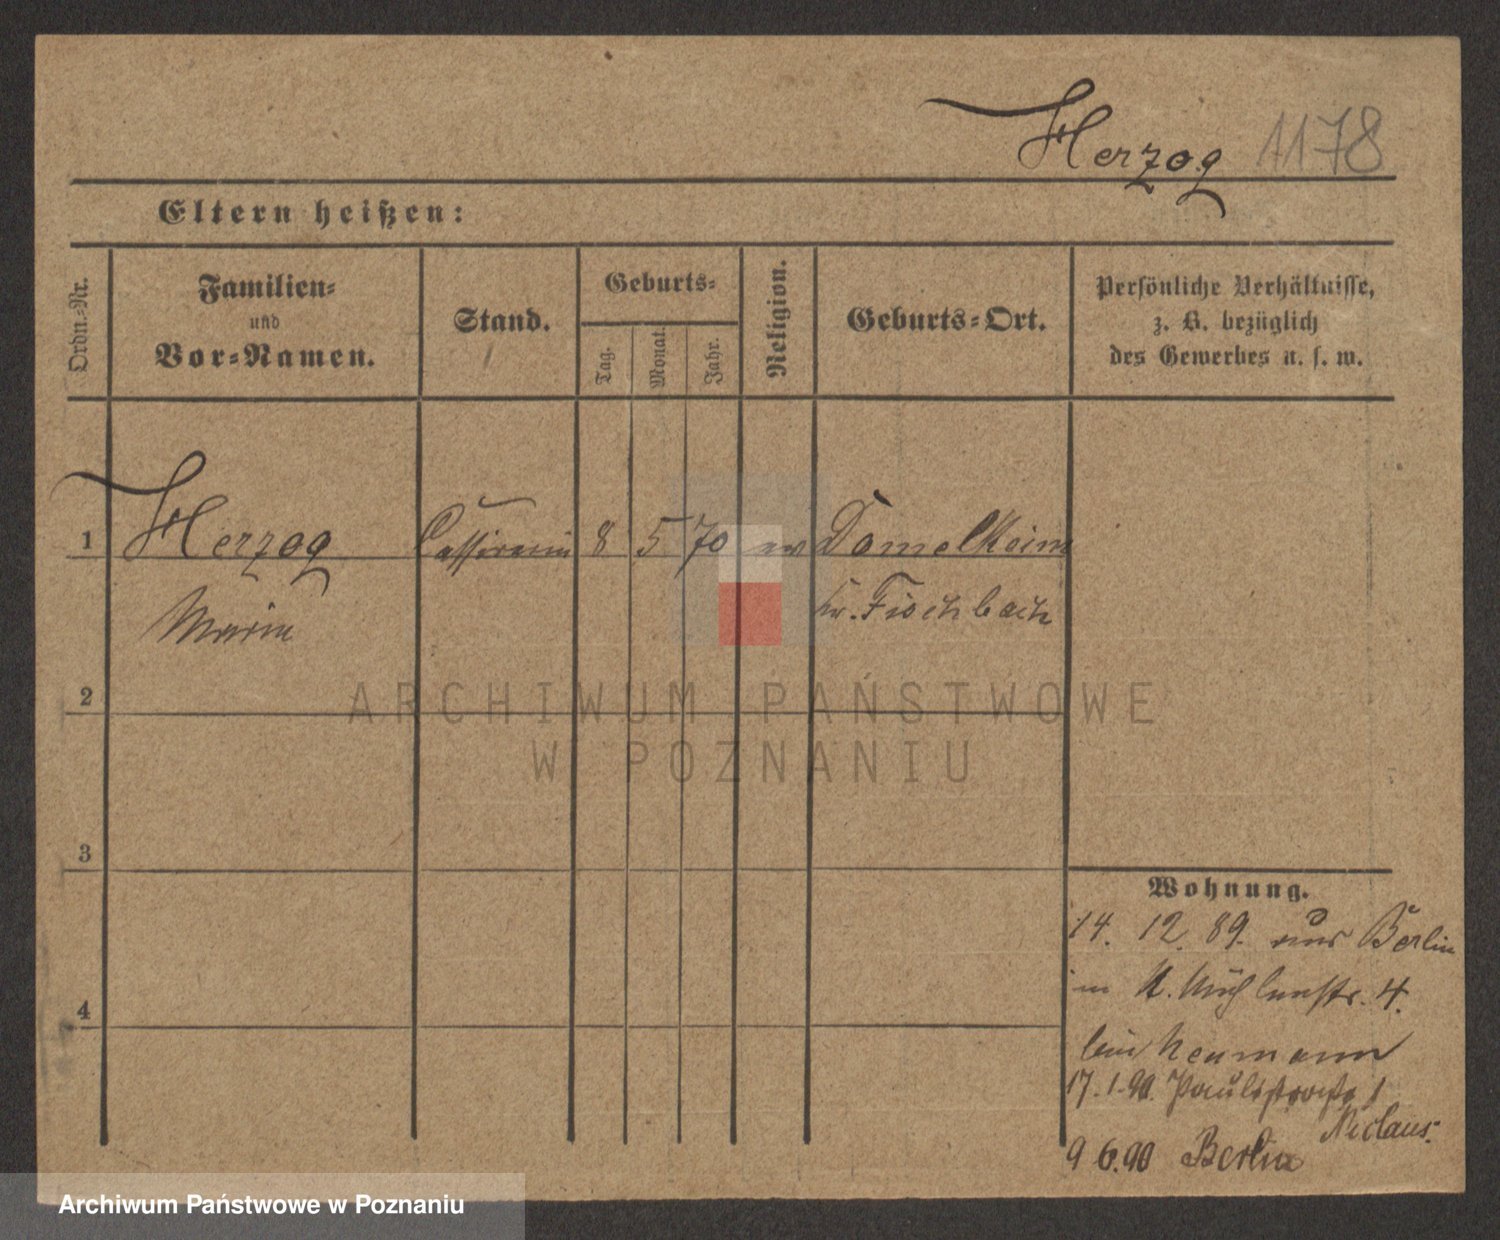 Herzog 1178
Eltern heißen:
Ordn.-Nr.
Familien-
und
Vor-Namen.
Stand.
Geburts-
Tag.
Monat.
Jahr.
Religion.
Geburts-Ort.
Persönliche Verhältnisse,
z. B. bezüglich
des Gewerbes u. s. w.
1 Herzog Cassirerin 8 5 70 ev Domelkeim
Kr. Fischbach
Marie
2
ARCHIWUM PAŃSTWOWE
W POZNANIU
3
Wohnung.
14. 12. 89. aus Berlin
in Mühlenstr. 4.
bei Neumann
4
17. 1. 90. Paulistraße 1
Niclaus.
9 6. 90 Berlin
Archiwum Państwowe w Poznaniu